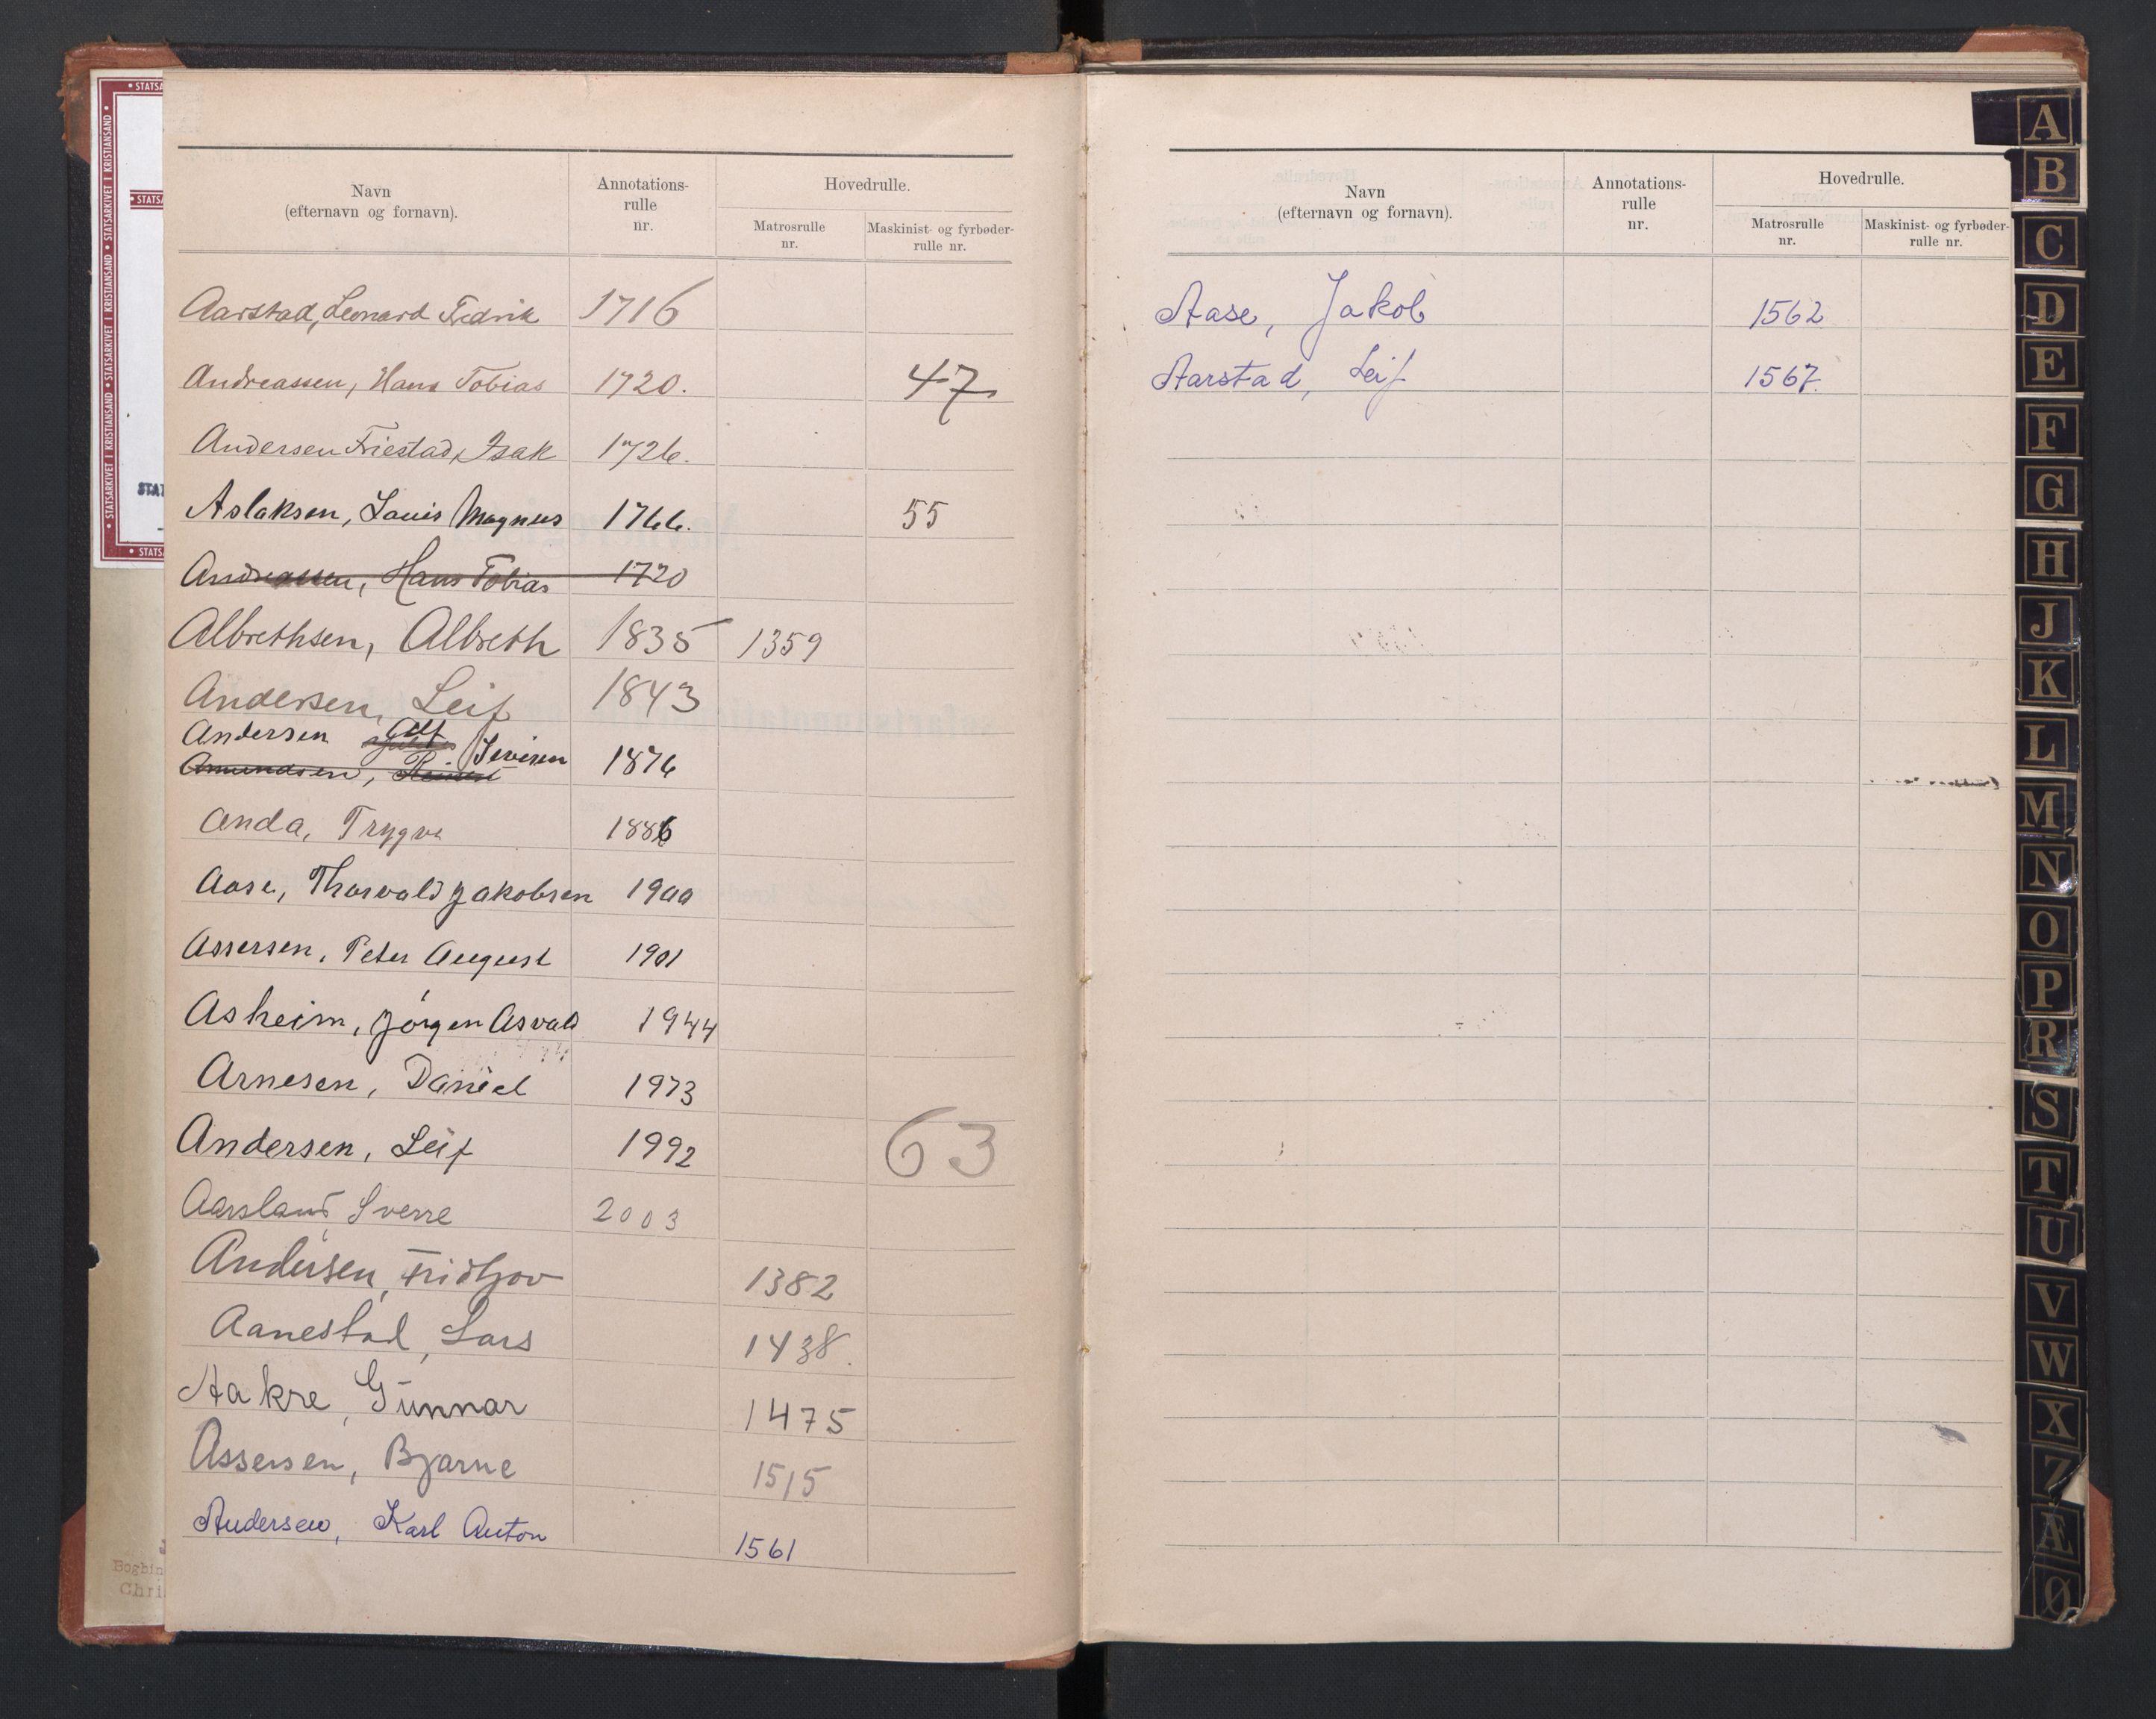 Navn
(efternavn og fornavn).
Annotations-
rulle
nr.
Hovedrulle.
Matrosrulle
nr.
Maskinist- og fyrbøder-
rulle nr.
Aarstad, Leonard Fredrik 1716
Andreassen, Hans Tobias 1720. 47
Andersen Friestad, Isak 1726.
Aslaksen, Louis Magnus 1766. 55
Andreassen, Hans Tobias 1720
Albrethsen, Albreth 1835 1359
Andersen, Leif 1843
Andersen Alf Iversen
Amundsen, 1876
Anda, Trygve 1886
Aase, Thorvald Jakobsen 1900
Assersen, Peter August 1901
Asheim, Jørgen Asvald 1944
Arnesen, Daniel 1973
Andersen, Leif 1992 63
Aarsland, Sverre 2003
Andersen, Fridtjov 1382
Aanestad, Lars 1438.
Aakre, Gunnar 1475
Assersen, Bjarne 1515
Andersen, Karl Anton 1561
Navn
(efternavn og fornavn).
Annotations-
rulle
nr.
Hovedrulle.
Matrosrulle
nr.
Maskinist- og fyrbøder-
rulle nr.
Aase, Jakob 1562
Aarstad, Leif 1567.
A
B
C
D
E
F
G
H
J
K
L
M
N
O
P
R
S
T
U
V
W
X
Z
Æ
Ø
• STATSARKIVET I KRISTIANSAND • STATSARKIVET I KRISTIANSAND • STATSARKIVET I KRISTIANSAND •